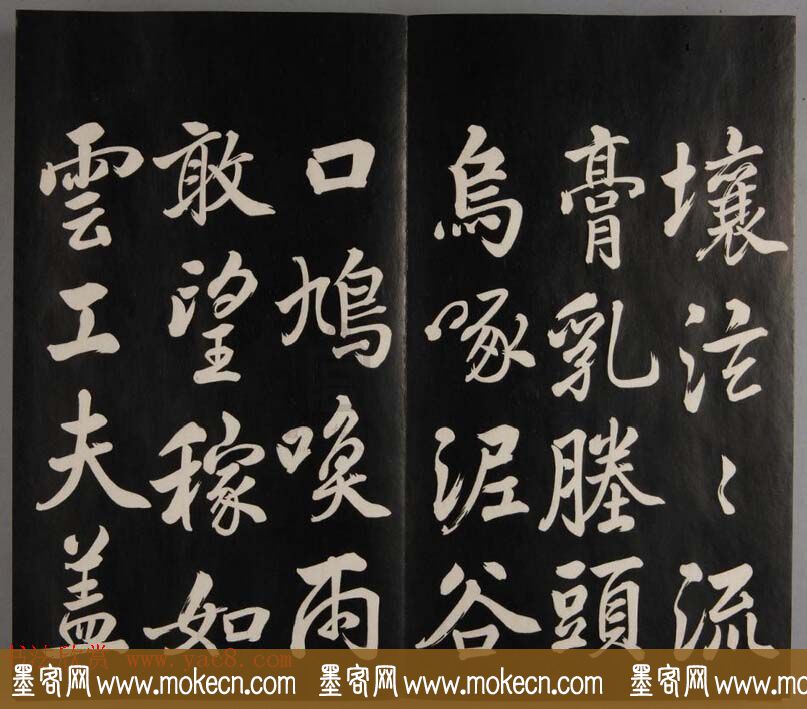 壤泣〻流
膏乳塍頭
烏啄泥谷
口鳩喚雨
敢望稼如
雲工夫盖
书法欣赏 www.yac8.com
墨客网 www.mokecn.com 墨客网 www.mokecn.com